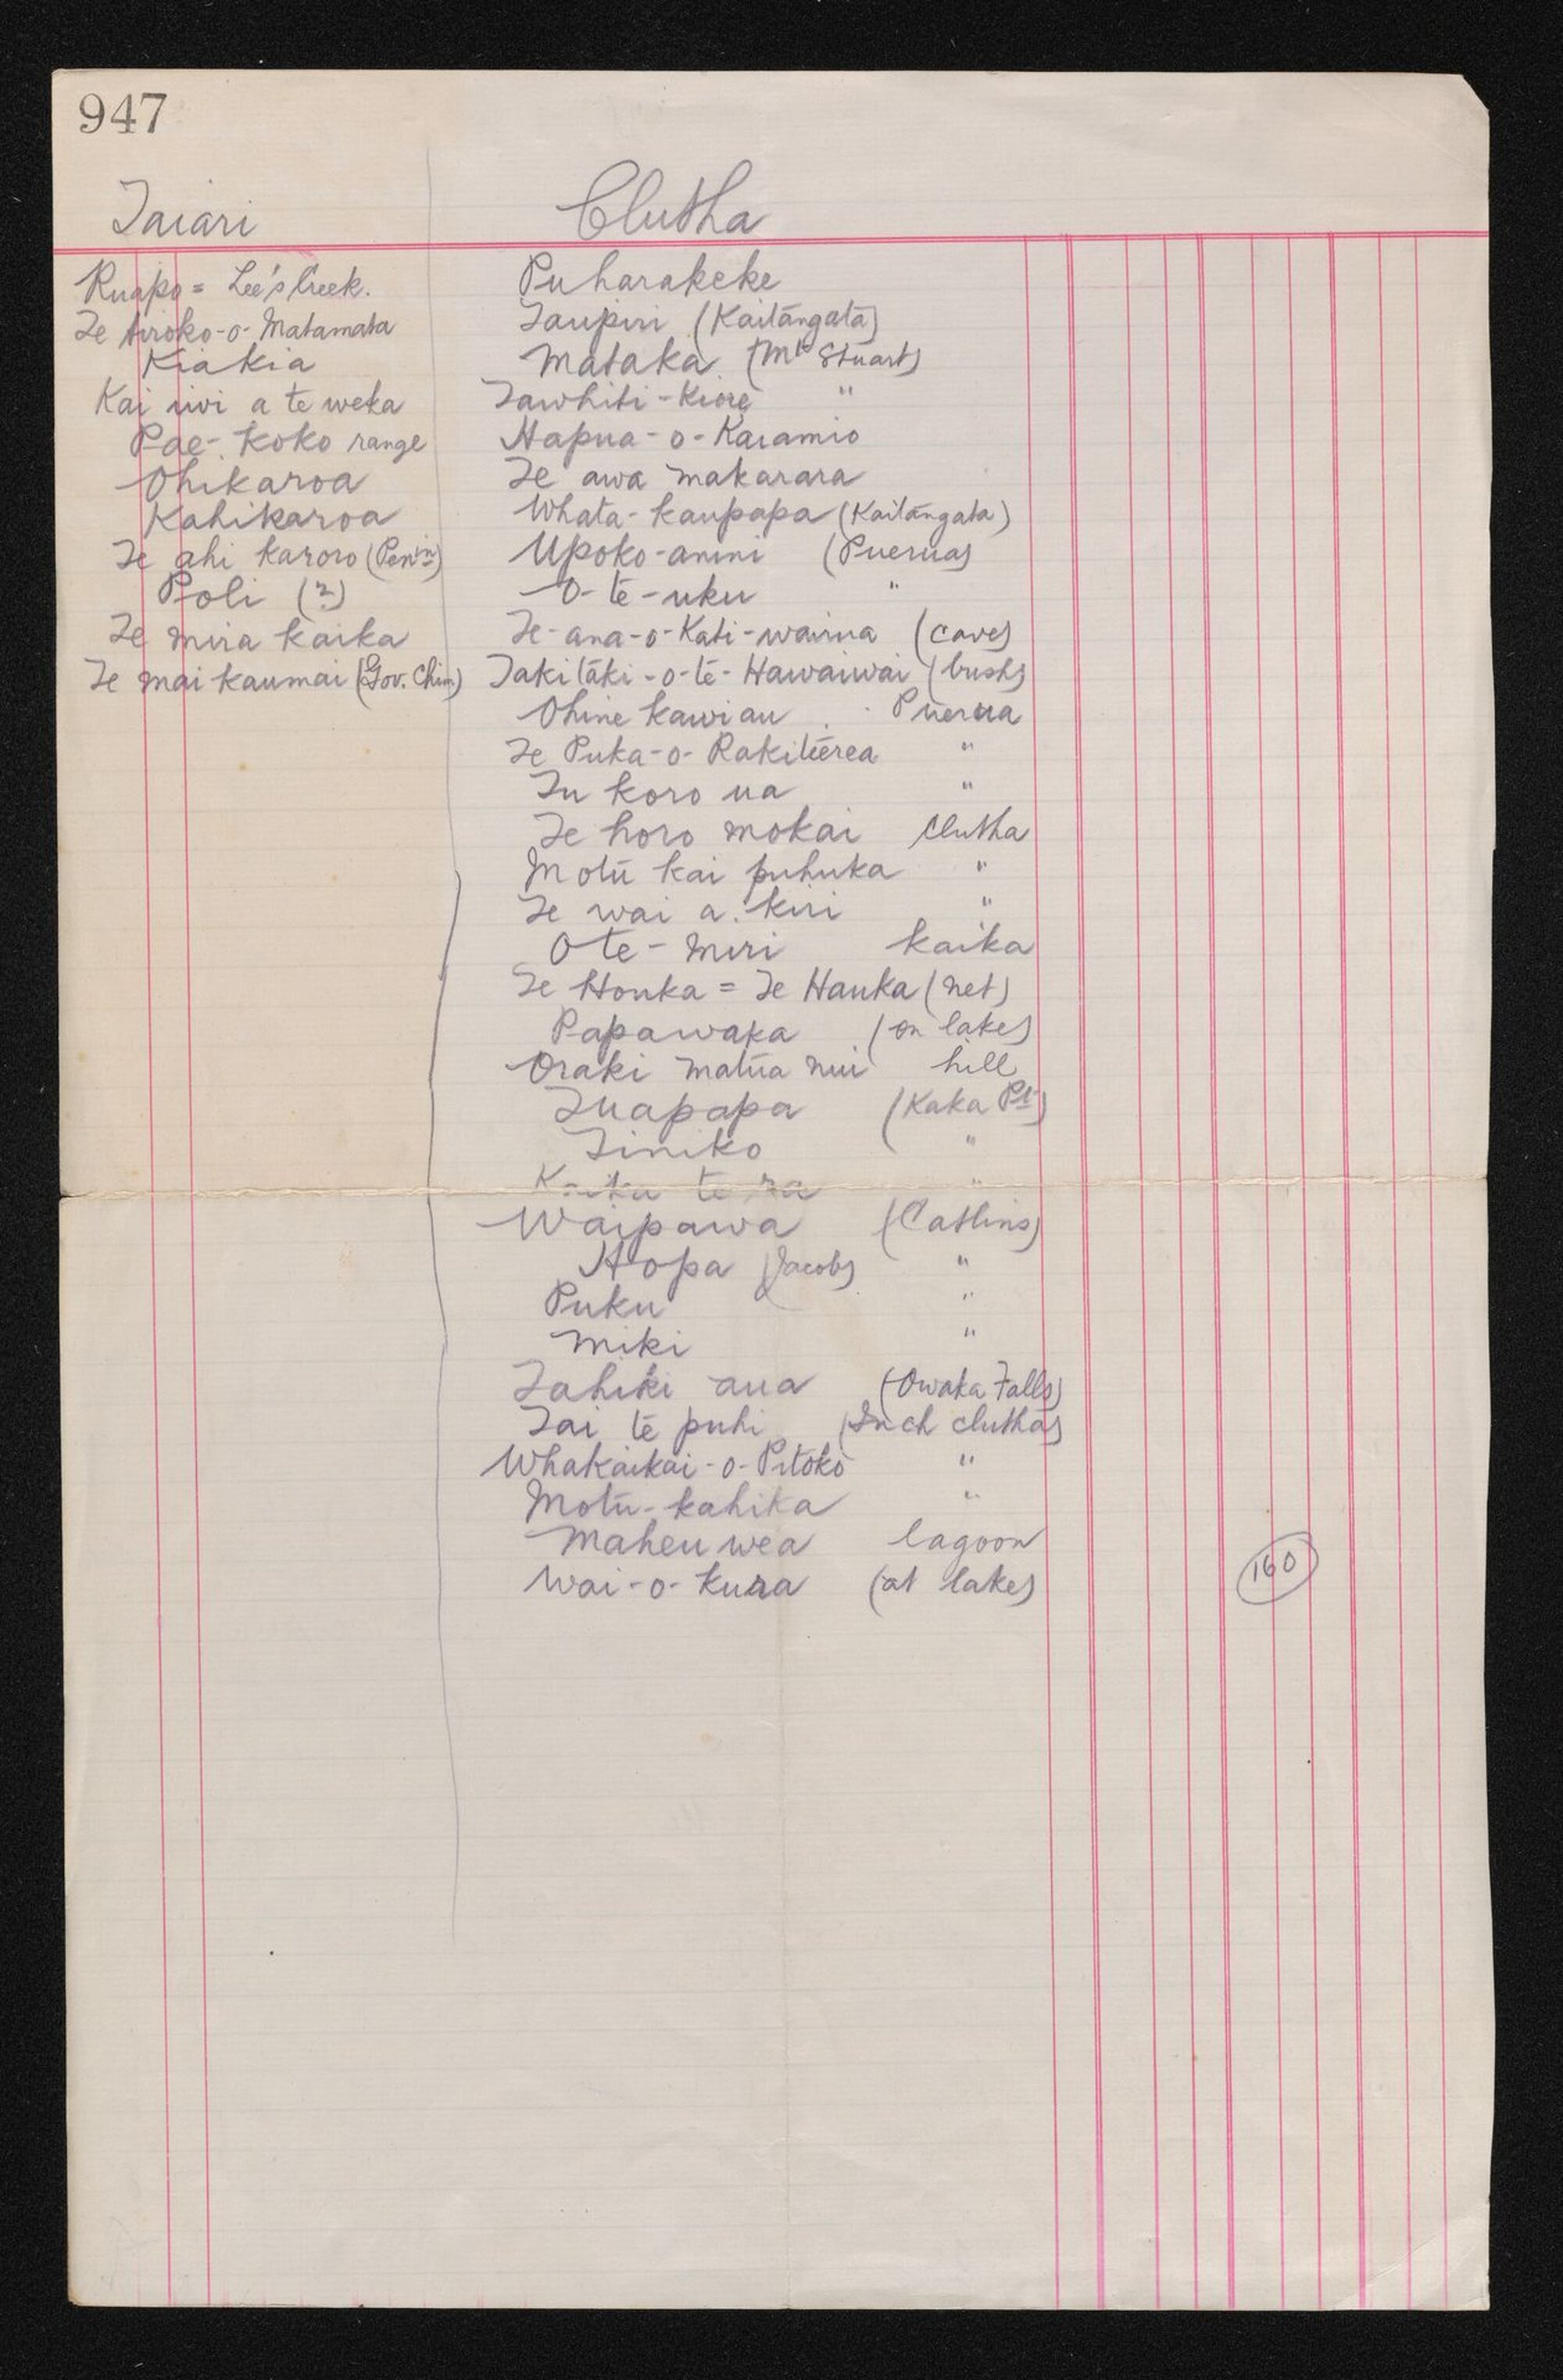 947
Taiari
Ruapo = Lee's Creek.
Te tiroko-o-Matamata
Kiakia
Kai iwi a te weka
Pae-koko range
Ohikaroa
Kahikaroa
Te ahi karoro (Penin)
Poli (?)
Te mira kaika
Te mai kaumai (Gov. Chim)
Clutha
Puharakeke
Taupiri (Kaitangata)
Mataka (Mt Stuart)
Tawhiti-Kiore "
Hapua-o-Karamio
Te awa makarara
Whata-kaupapa (Kaitangata)
Upoko-amini (Puerua)
O-te-uku "
Te-ana-o-Kati-wairua (cave)
Takitaki-o-te-Hawaiwai (bush)
Ohine kawiau Puerua
Te Puka-o-Rakiteerea "
Tu koro ua "
Te horo mokai Clutha
Motu kai puhuka "
Te wai a kiri "
O te-miri kaika
Te Houka = Te Hauka (net)
Papawaka (on lake)
Oraki matua nui hill
Tuapapa (Kaka Pt)
Tiniko "
te ra "
Waipawa (Catlins)
Hopa (Jacob) "
Puku "
Miki "
Tahiki aua (Owaka Falls)
Tai te puhi (Inch clutha)
Whakaikai-o-Pitoko "
Motu-kahika "
Maheu wea lagoon
Wai-o-kura (at lake)
160